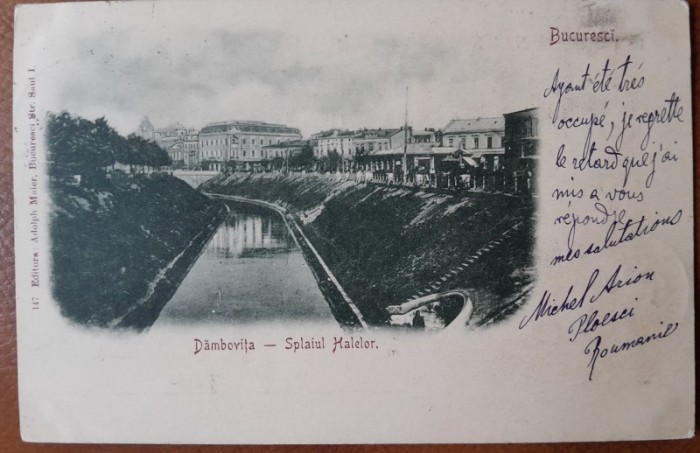 Bucuresci.
Ayant été trés
occupé, je regrette
le retard que j'ai
mis a vous
répondre
mes salutations
Michel Arion
Ploesci
Roumanie
147 Editura: Adolph Maier, Bucuresci Str. Saul 1
Dâmboviţa — Splaiul Halelor.